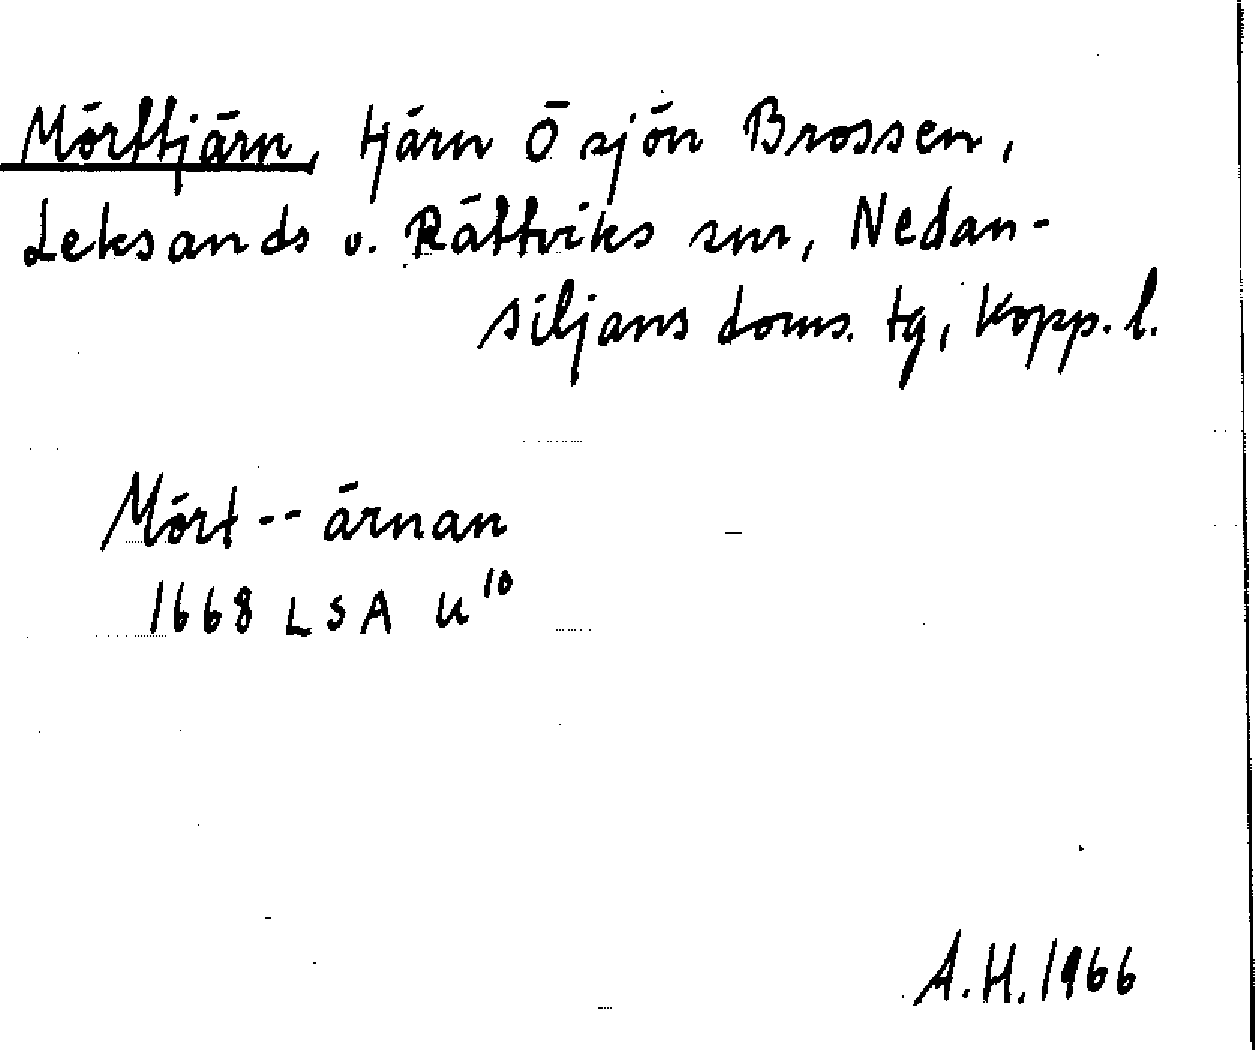 Mörttjärn, tjärn Ö sjön Brossen,
Leksands o. Rättviks snr, Nedan-
siljans doms. tg, Kopp. l.
Mört -- ärnan
1668 LSA U¹⁰
A.H. 1966